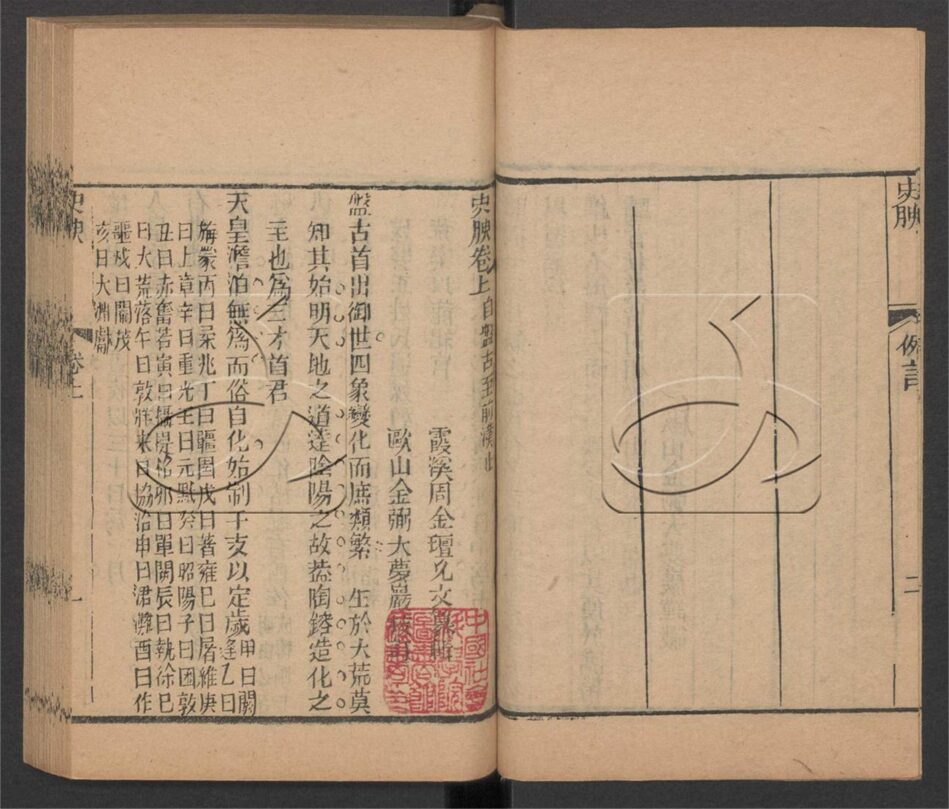 史腴
例言
二
史腴卷上 自盤古至前漢止
霞溪周金壇允文
歐山金弻大夢巖
盤古首出御世四象變化而庶類繁 生於大荒莫
知其始明天地之道達陰陽之故蓋陶鎔造化之
主也為三才首君
天皇澹泊無為而俗自化始制干支以定歲 甲曰閼逢乙曰
旃蒙丙曰柔兆丁曰疆圉戊曰著雍巳曰屠維庚
曰上章辛曰重光壬曰元黓癸曰昭陽子曰困敦
丑曰赤奮若寅曰攝提格卯曰單閼辰曰執徐巳
曰大荒落午曰敦牂未曰協洽申曰涒灘酉曰作
噩戌曰閹茂
亥曰大淵獻
史腴
卷上
一